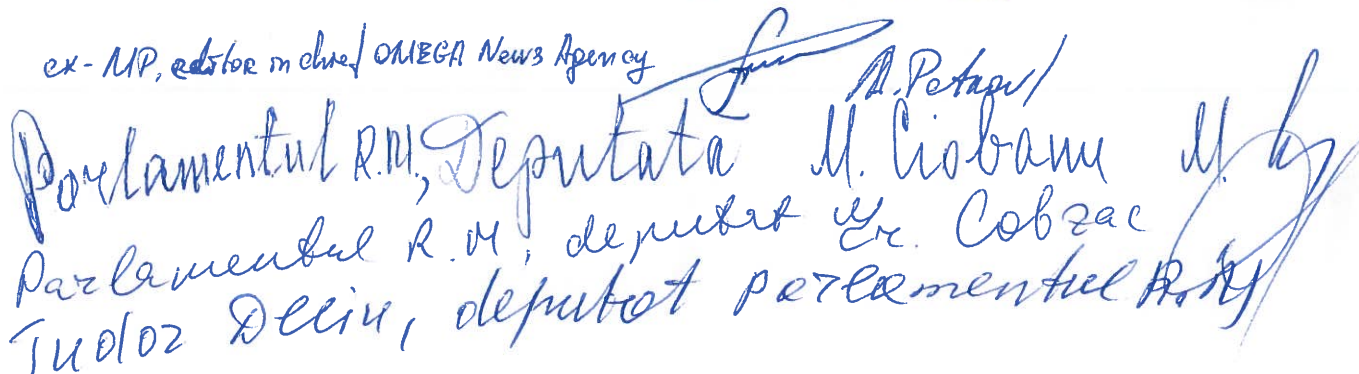 ex-MP, editor in chief OMEGA News Agency A. Petrov
Parlamentul R.M., Deputată M. Ciobanu
Parlamentul R.M, deputat Gr. Cobzac
Tudor Deliu, deputat parlamentul R.M